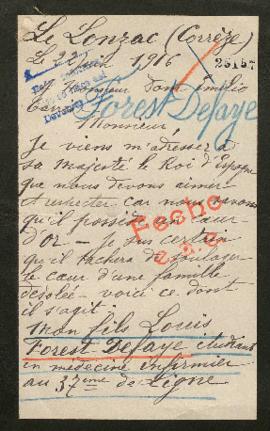 Le Lonzac (Corrèze)
Le 23 1916
25157
A Monsieur dom Emilio
Forest Defaye
Monsieur,
Je viens m'adresser a
sa majesté le Roi d'Espagne
que nous devons aimer
et respecter car nous savons
qu'il possède un cœur
d'Or — je suis certain
Fecho
qu'il tâchera de soulager
le cœur d'une famille
désolée — voici ce dont
il s'agit
Mon fils Louis
Forest Defaye étudiant
en médecine infirmier
au 37eme de Ligne